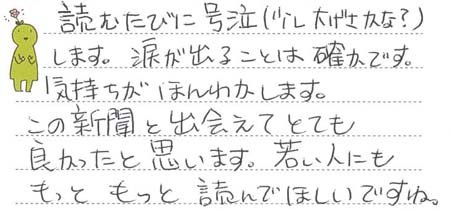 読むたびに号泣(少し大げさかな?)
します。涙が出ることは確かです。
気持ちがほんわかします。
この新聞と出会えてとても
良かったと思います。若い人にも
もっと もっと 読んでほしいですね。